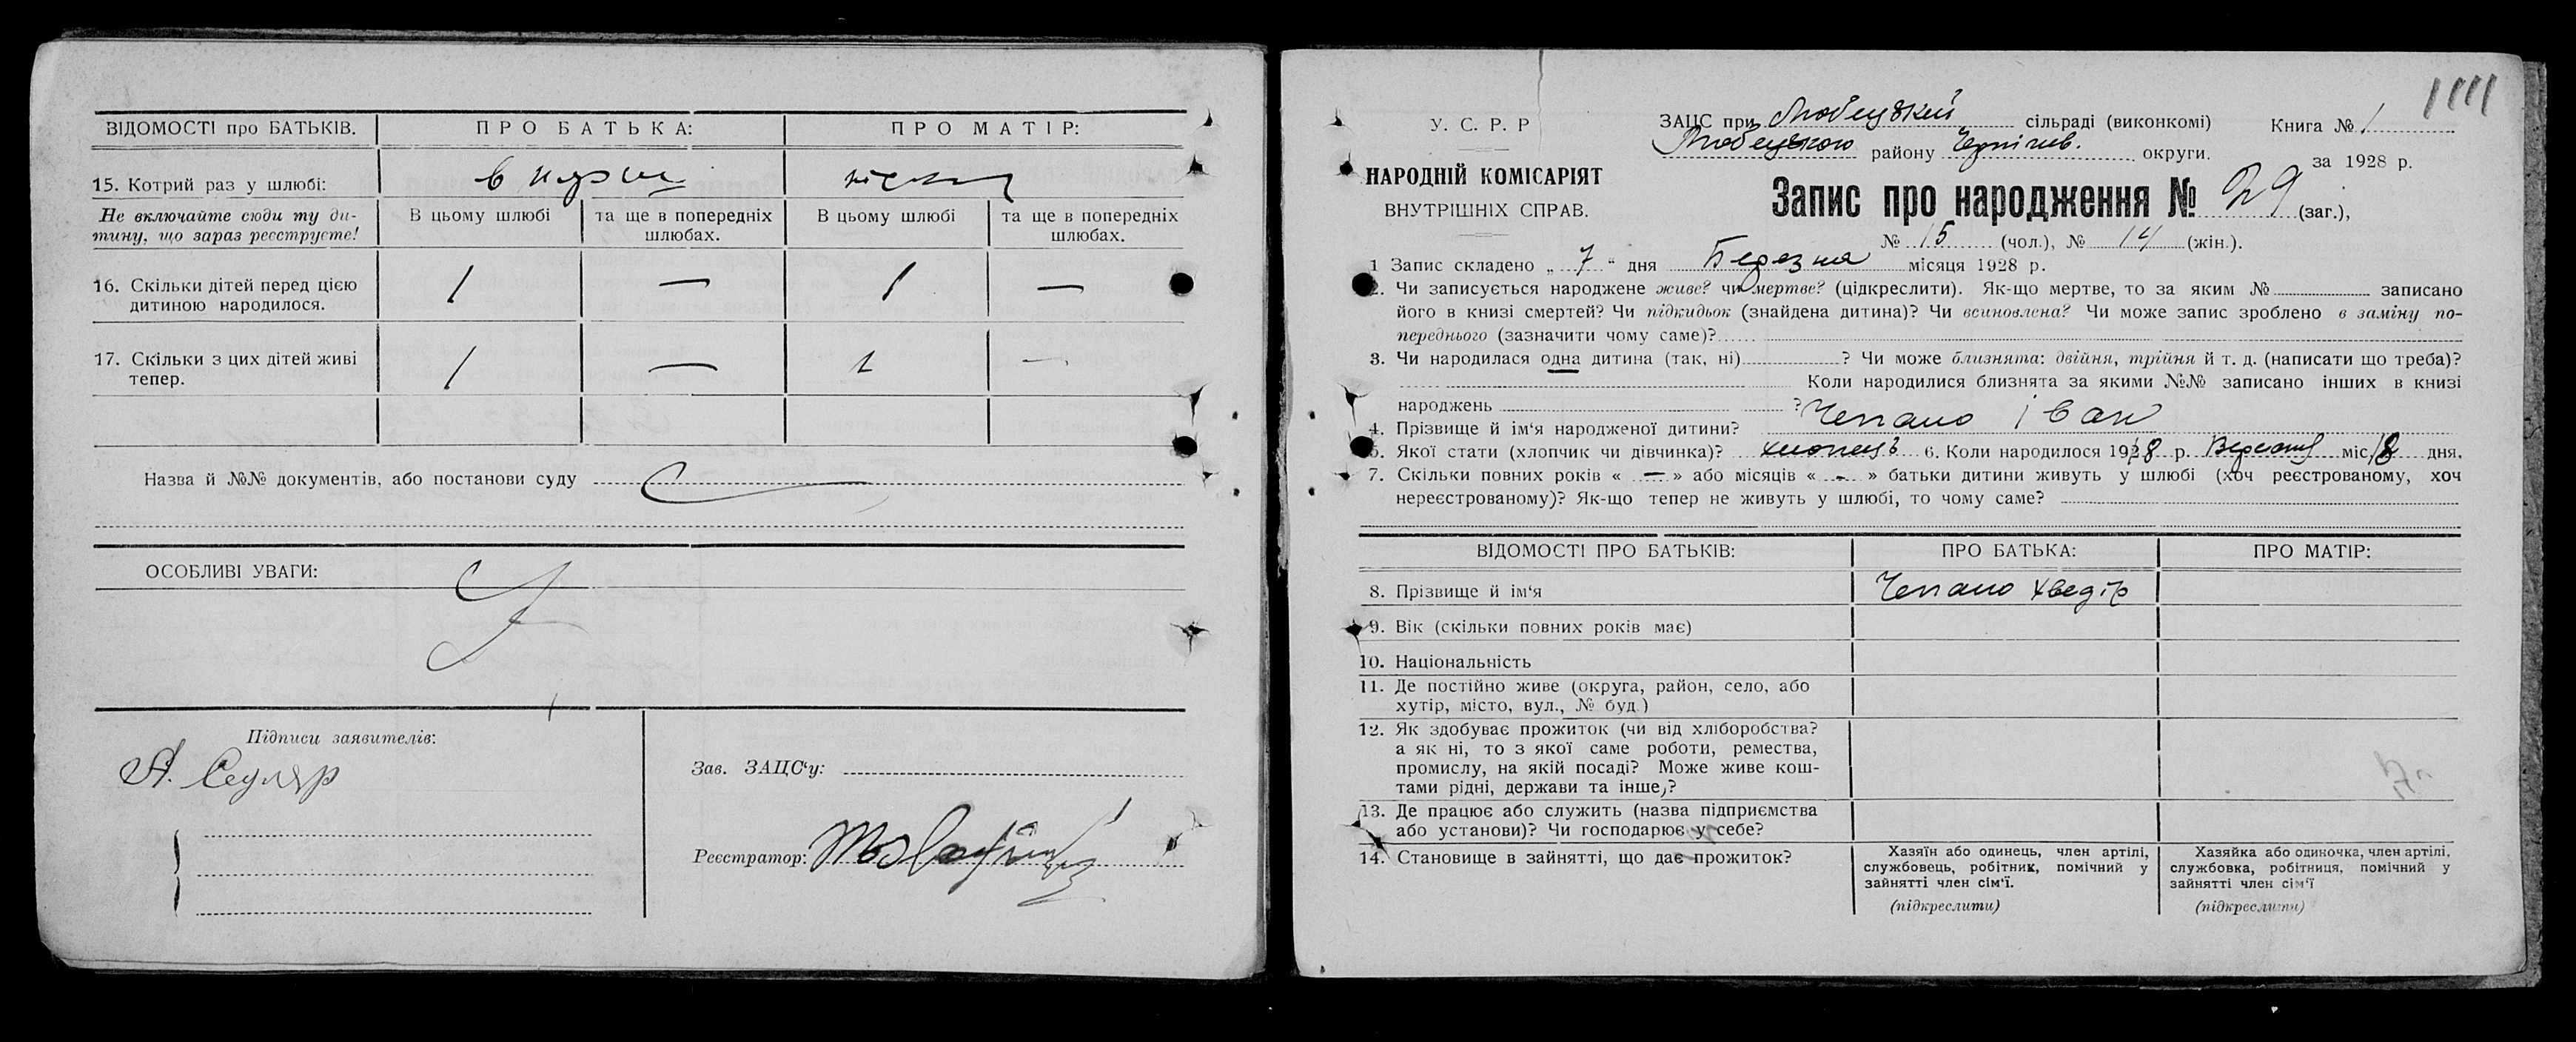 ВІДОМОСТІ про БАТЬКІВ. П Р О Б А Т Ь К А: П Р О М А Т І Р:
15. Котрий раз у шлюбі: в перш
Не включайте сюди ту ди-
тину, що зараз реєструєте!
В цьому шлюбі
та ще в попередніх
шлюбах.
В цьому шлюбі
та ще в попередніх
шлюбах.
16. Скільки дітей перед цією
дитиною народилося.
1 — 1 —
17. Скільки з цих дітей живі
тепер.
1 — 1 —
Назва й №№ документів, або постанови суду
ОСОБЛИВІ УВАГИ:
Підписи заявителів:
Зав. ЗАЦС‘у:
Реєстратор:
У. С. Р. Р
НАРОДНІЙ КОМІСАРІЯТ
ВНУТРІШНІХ СПРАВ.
ЗАЦС при Любецькій сільраді (виконкомі) Книга № 1
Любецького району Чернігів. округи.
за 1928 р.
Запис про народження № 29 (заг.),
№ 15 (чол.), № 14 (жін.).
1 Запис складено „ 7 “ дня Березня місяця 1928 р.
2. Чи записується народжене живе? чи мертве? (цідкреслити). Як-що мертве, то за яким № записано
його в книзі смертей? Чи підкидьок (знайдена дитина)? Чи всиновлена? Чи може запис зроблено в заміну по-
переднього (зазначити чому саме)?
3. Чи народилася одна дитина (так, ні) ? Чи може близнята: двійня, трійня й т. д. (написати що треба)?
Коли народилися близнята за якими №№ записано інших в книзі
народжень ?
4. Прізвище й ім‘я народженої дитини? Іван
5. Якої стати (хлопчик чи дівчинка)? хлопець 6. Коли народилося 1928 р. міс. 18 дня.
7. Скільки повних років « — » або місяців « - » батьки дитини живуть у шлюбі (хоч реєстрованому, хоч
нереєстрованому)? Як-що тепер не живуть у шлюбі, то чому саме?
ВІДОМОСТІ ПРО БАТЬКІВ: ПРО БАТЬКА: ПРО МАТІР:
8. Прізвище й ім‘я Хведір
9. Вік (скільки повних років має)
10. Національність
11. Де постійно живе (округа, район, село, або
хутір, місто, вул., № буд.)
12. Як здобуває прожиток (чи від хліборобства?
а як ні, то з якої саме роботи, ремества,
промислу, на якій посаді? Може живе кош-
тами рідні, держави та інше,?
13. Де працює або служить (назва підприємства
або установи)? Чи господарює у себе?
14. Становище в зайнятті, що дає прожиток?
Хазяїн або одинець, член артілі,
службовець, робітник, помічний у
зайнятті член сім‘ї.
(підкреслити)
Хазяйка або одиночка, член артілі,
службовка, робітниця, помічний у
зайнятті член сім‘ї
(підкреслити)